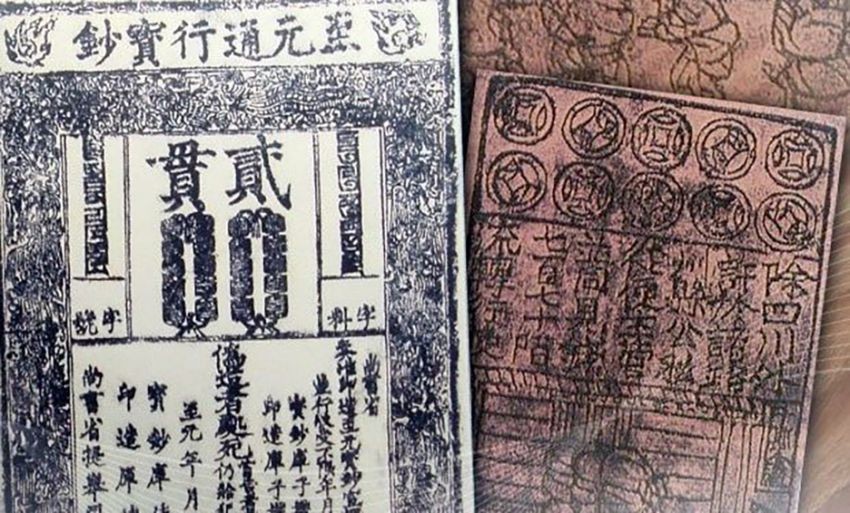 至元通行寶鈔
貳貫
字料
字號
尚書省
奏准印造至元寶鈔宣
並行收受不限年月
寶鈔庫子攢
印造庫子攢
偽造者處死
仍給犯
至元年月
寶鈔庫使
印造庫使
尚書省提舉司
除四川外
許於諸路
州縣公私
從便主管
並同見錢
七百七十陌
流轉行使